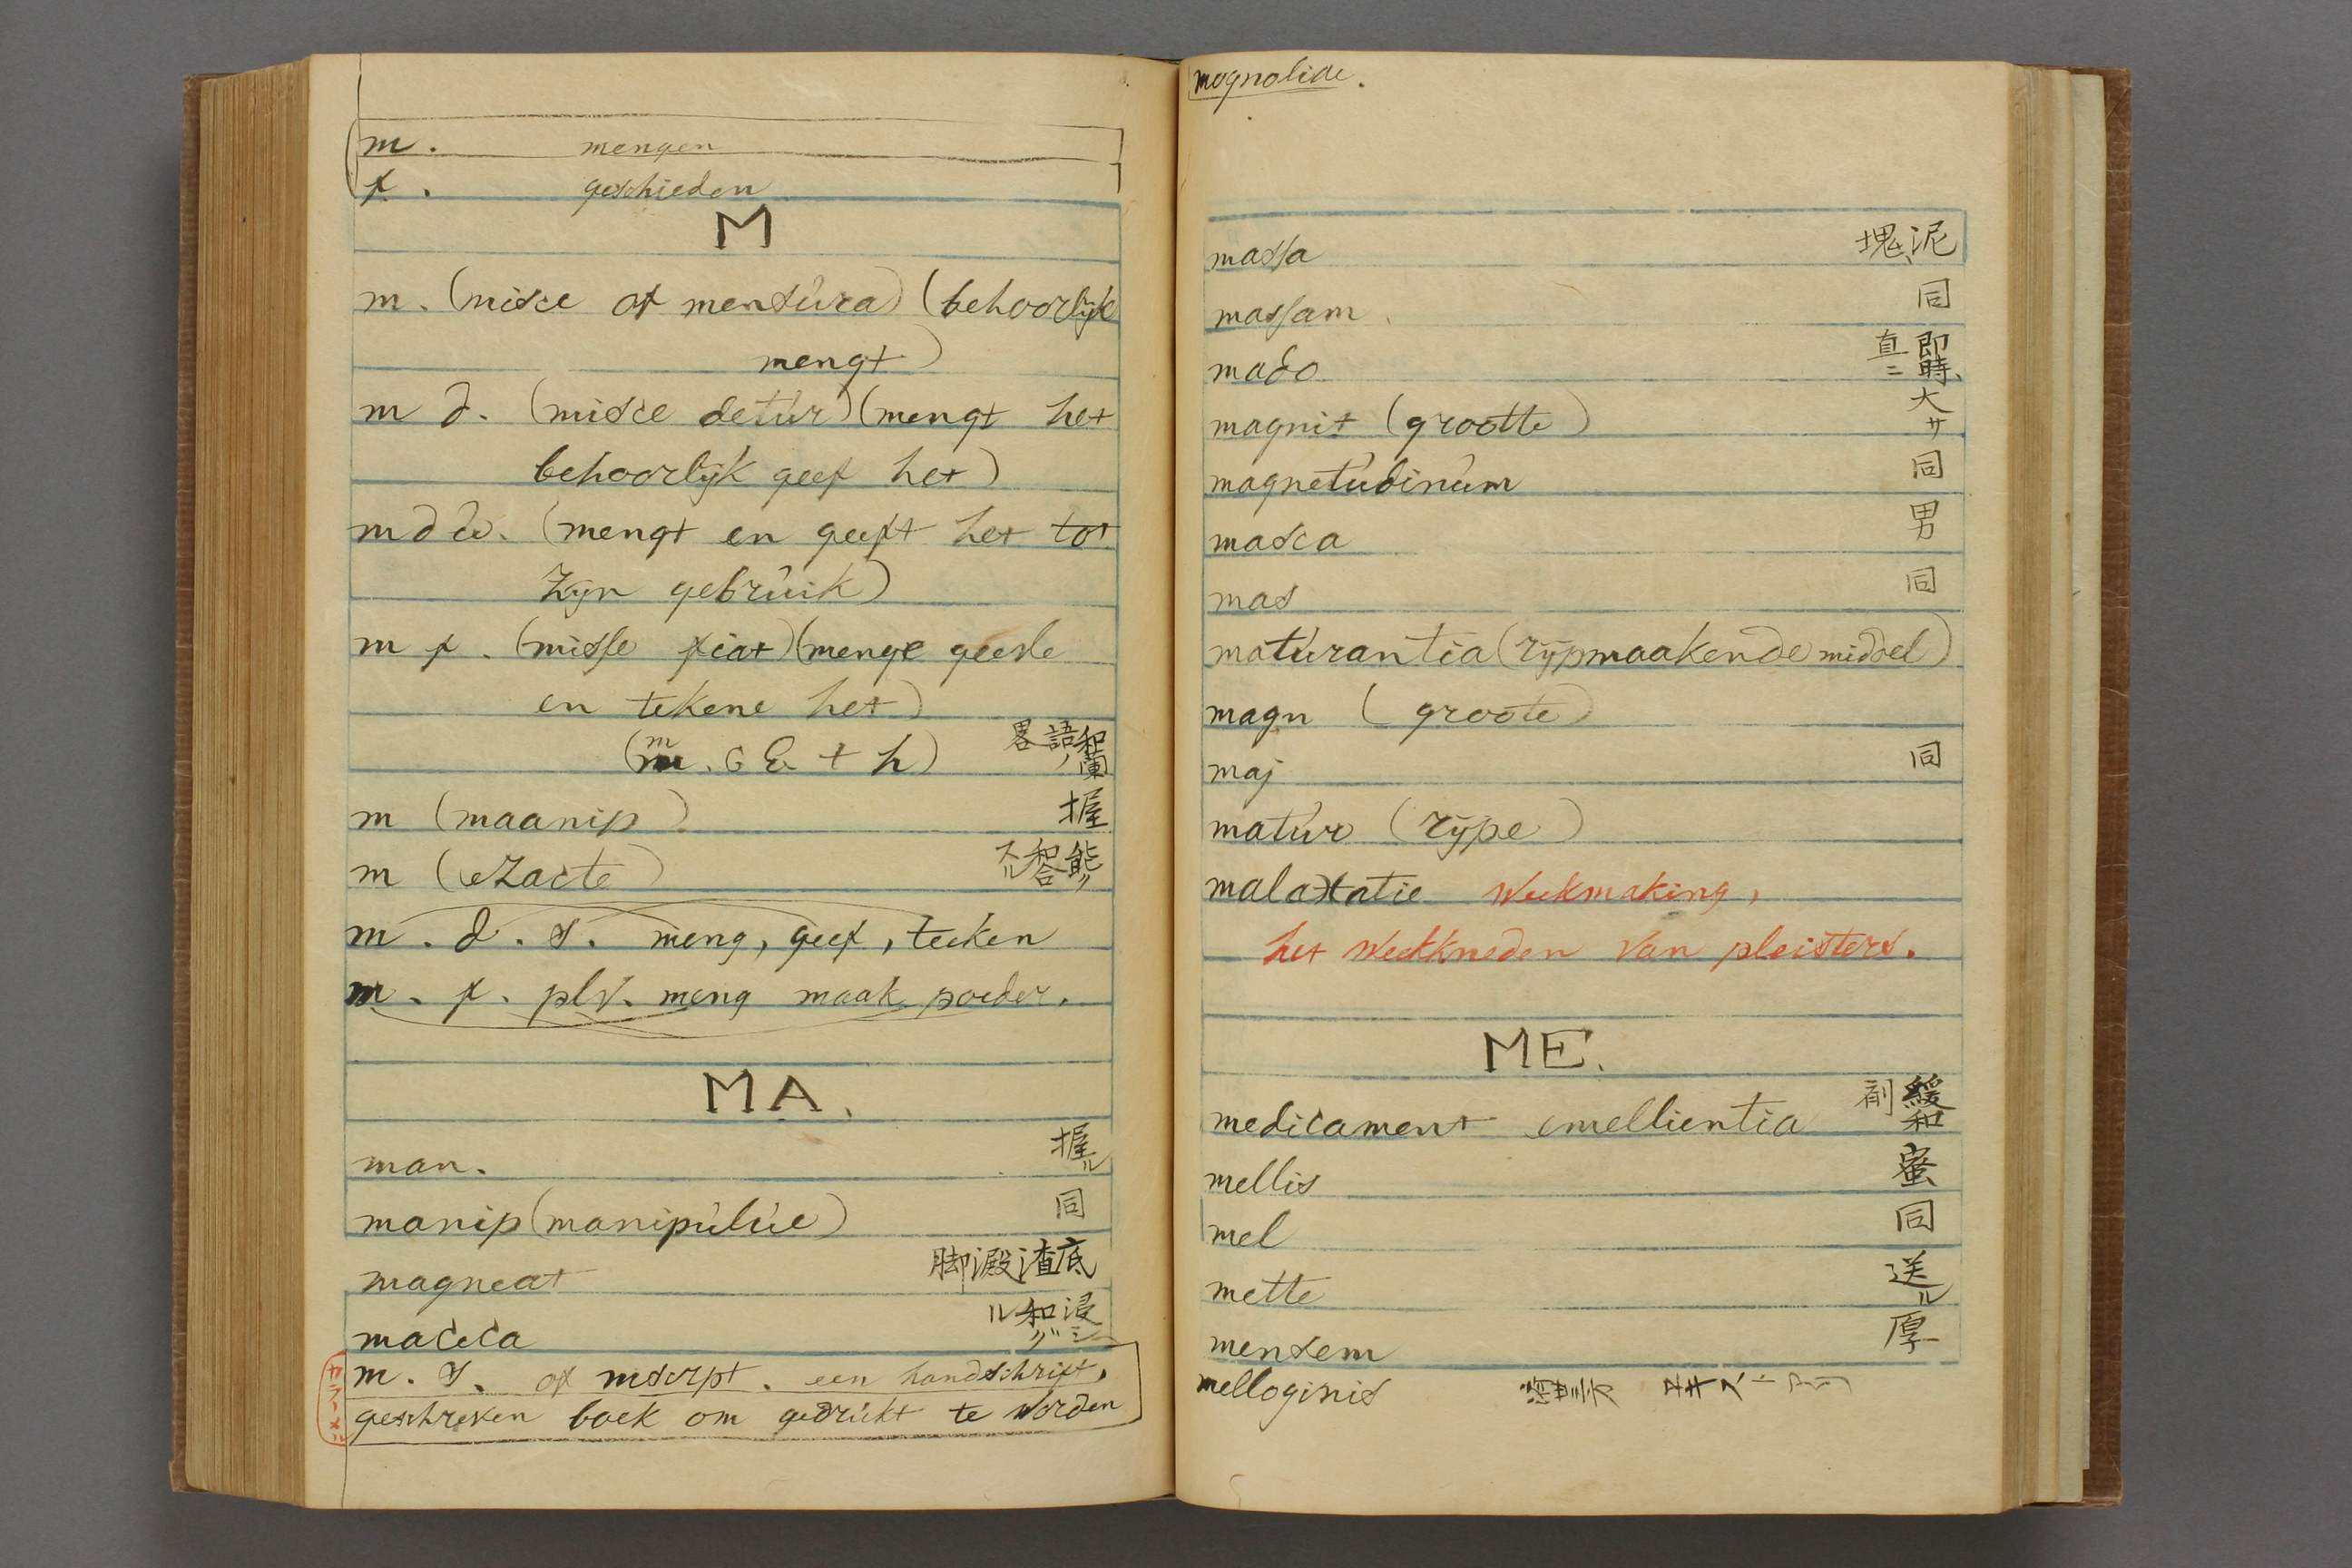 m. mengen
f. geschieden
M
m. (misce of mensúra) (behoorlijk
mengt)
m d. (misce detúr) (mengt het
behoorlijk geef het)
m d (mengt en geeft het tot
zijn gebrúik)
m f. (misse fiat) (menge
en tekene het)
和蘭語ノ畧
m (maanip) 握
m (exacte) 能ク和合スル
m. d. s. meng, geef, teeken
m. f. plv. meng maak poeder.
MA.
man. 握ル
manip (manipúlúe) 同
magneat 底渣澱脚
maceca 浸シ和グル
m. s. of mscrpt. een handschrift,
geschreven boek om gedrúkt te worden
magnoliae.
massa 泥、塊
massam 同
mado 即時、直ニ
magnit (grootte) 大サ
magnetúdinúm 同
masca 男
mas 同
matúrantia (rijpmaakende middel)
magn (groote)
maj 同
matúr (rijpe)
malaxatie Weekmaking,
het Weekkneden van pleisters.
ME.
medicament emellientia 緩和剤
mellis 蜜
mel 同
mette 送ル
mensem 厚
melloginis